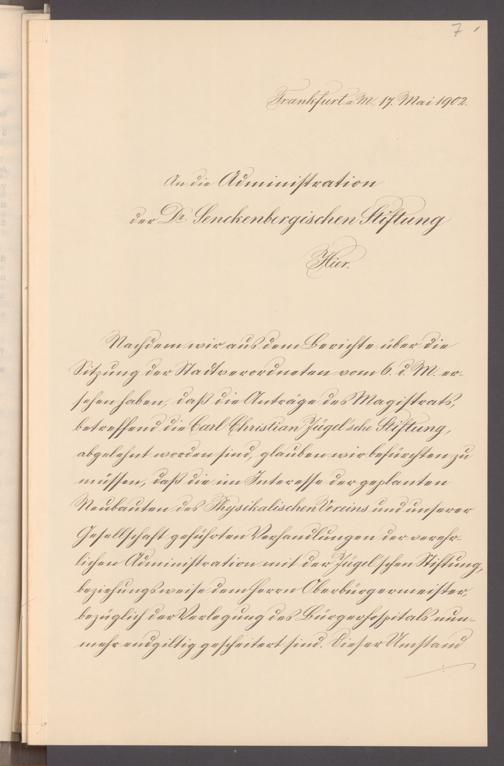 7
Frankfurt a M. 17. Mai 1902.
An die Administration
der Dr. Senckenbergischen Stiftung
Hier.
Nachdem wir aus dem Berichte über die
Sitzung der Stadtverordneten vom 6. d. M. er-
sehen haben, daß die Anträge des Magistrats,
betreffend die Carl Christian Jügel'sche Stiftung,
abgelehnt worden sind, glauben wir befürchten zu
müssen, daß die im Interesse der geplanten
Neubauten des Physikalischen Vereins und unserer
Gesellschaft geführten Verhandlungen der verehr-
lichen Administration mit der Jügel'schen Stiftung,
beziehungsweise dem Herrn Oberbürgermeister,
bezüglich der Verlegung des Bürgerhospitals nun-
mehr endgiltig gescheitert sind. Dieser Umstand